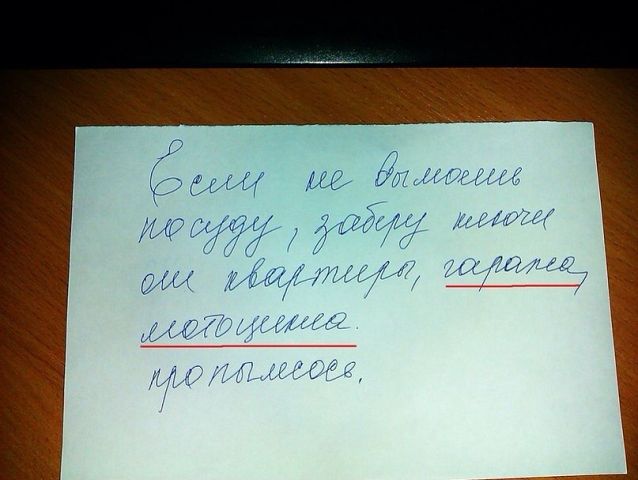 Если не вымоешь
посуду, заберу ключи
от квартиры, гаража,
мотоцикла.